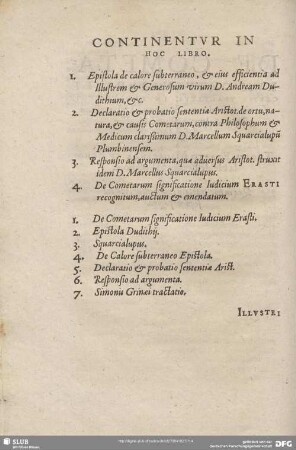 CONTINENTVR IN
HOC LIBRO.
1. Epistola de calore subterraneo, & eius efficientia ad
Illustrem & Generosum virum D. Andream Du-
dithium, &c.
2. Declaratio & probatio sententiæ Aristot. de ortu, na-
tura, & causis Cometarum, contra Philosophum &
Medicum clarissimum D. Marcellum Squarcialupũ
Plumbinensem.
3. Responsio ad argumenta, quæ adversus Aristot. struxit
idem D. Marcellus Squarcialupus.
4. De Cometarum significatione Iudicium ERASTI
recognitum, auctum & emendatum.
1. De Cometarum significatione Iudicium Erasti.
2. Epistola Dudithij.
3. Squarcialupus.
4. De Calore subterraneo Epistola.
5. Declaratio & probatio sententiæ Arist.
6. Responsio ad argumenta.
7. Simonis Grinæi tractatio.
ILLVSTRI
SLUB
Wir führen Wissen.
DFG